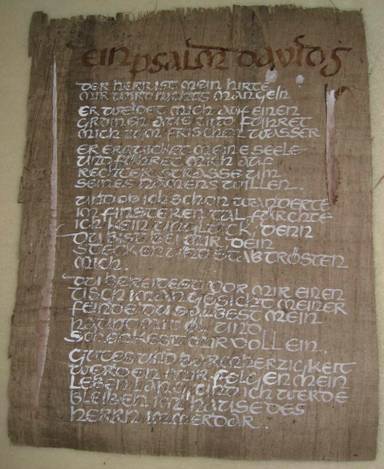 ein psalm davids
der herr ist mein hirte
mir wird nichts mangeln
er weidet mich auf einen
grünen aue und führet
mich zum frischen wasser
er erquicket meine seele
und führet mich auf
rechter strasse um
seines namens willen.
und ob ich schon wanderte
im finsteren tal fürchte
ich kein unglück, denn
du bist bei mir, dein
stecken und stab trösten
mich.
du bereitest vor mir einen
tisch im angesicht meiner
feinde du salbest mein
haupt mit öl und
schenkest mir voll ein.
gutes und barmherzigkeit
werden mir folgen mein
leben lang und ich werde
bleiben im hause des
herrn immerdar.